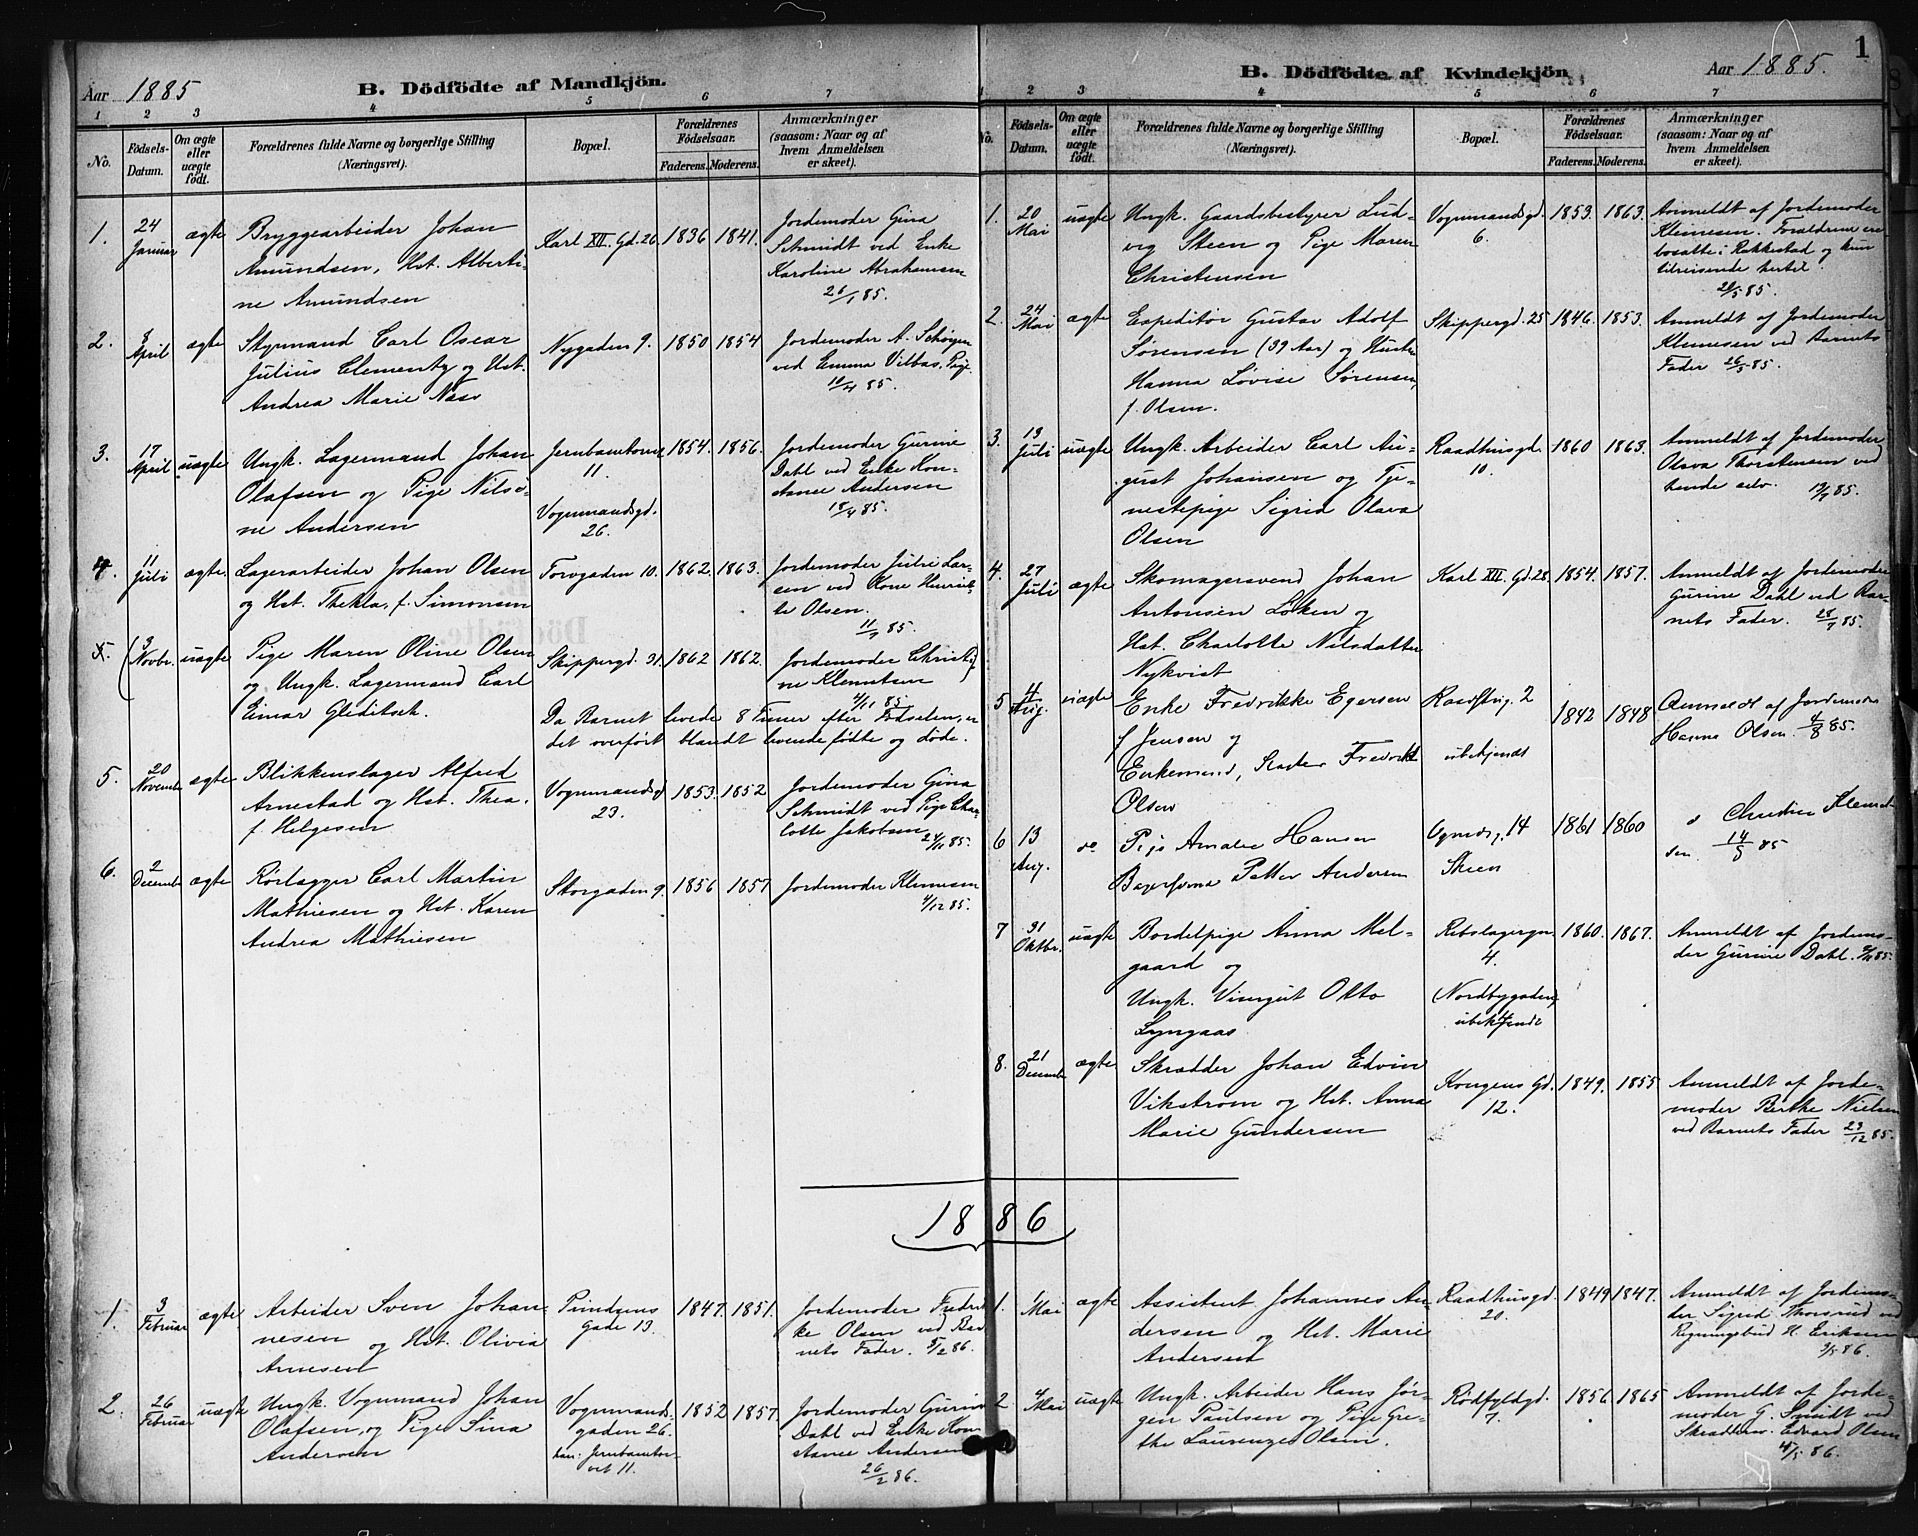 Aar 1885
B. Dödfödte af Mandkjön.
1 2 3 4 5 6 7
No.
Födsels-Datum.
Om ægte eller uægte födt.
Forældrenes fulde Navne og borgerlige Stilling
(Næringsvei).
Bopæl.
Forældrenes Födselsaar.
Faderens. Moderens.
Anmærkninger
(saasom: Naar og af
hvem Anmeldelsen
er skeet).
1. 24 Januar ægte Bryggearbeider Johan
Amundsen, Hst. Alberti-
ne Amundsen
Karl XII Gd. 26 1836 1841.
Jordemoder Gina
Schmidt ved Enke
Karoline Abrahamsen
26/1 85.
2. April ægte
Carl Oscar
Julius Clementz og Hst.
Andrea Marie Næss
Nygaden 9. 1850 1854
Jordemoder A.
ved Emma Pige
10/4 85.
3. 17 April uægte Ungk. Lagermand Johan
Olafsen og Pige Nilsi-
ne Andersen
Jernbanetorvet
11.
Vognmandsgd.
26.
1854. 1856.
Jordemoder Gurine
Dahl ved Enke Kon-
stance Andersen
18/4 85.
4. 11 Juli ægte. Lagerarbeider Johan Olsen
og Hst. Thekla, f. Simonsen
Torvgaden 10. 1862. 1863.
Jordemoder Julie Lar-
sen ved Kone Henriet-
te Olsen.
11/7 85.
5. (3 Novbr. uægte Pige Maren Oline Olsen
og Ungk. Lagermand Carl
Einar Gleditsch.
Skippergd. 31. 1862 1862.
Jordemoder Christi-
ne Klemetsen
4/11 85
Da Barnet levede 8 Timer efter Fødselen, er
det overført blandt levende fødte og døde.
5. 20 November ægte Blikkenslager Alfred
Arnestad og Hst. Thea,
f. Helgesen
Vognmandsgd
23.
1853. 1852
Jordemoder Gina
Schmidt ved Pige Char-
lotte Jakobsen
24/11 85.
6. 2 December ægte Rørlægger Carl Martin
Mathiesen og Hst. Karen
Andrea Mathiesen
Storgaden 9. 1856 1857
Jordemoder Klemesen
4/12 85.
1886
1. 3 Februar ægte Arbeider Sven Johan-
nesen og Hst. Olivia
Arnesen
Prindsens
gade 13.
1847. 1851.
Jordemoder Fredrik-
ke Olsen ved Bar-
nets Fader. 5/2 86.
2. 26 Februar uægte Ungk. Vognmand Johan
Olafsen, og Pige Sina
Andersen
Vognmands-
gaden 26.
han: Jernbanetor-
vet 11.
1852 1857.
Jordemoder Gurine
Dahl ved Enke Kon-
stance Andersen
26/2 86.
1
B. Dödfödte af Kvindekjön
Aar 1885.
1 2 3 4 5 6 7
No.
Födsels-Datum.
Om ægte eller uægte födt.
Forældrenes fulde Navne og borgerlige Stilling
(Næringsvei).
Bopæl.
Forældrenes Födselsaar.
Faderens. Moderens.
Anmærkninger
(saasom: Naar og af
hvem Anmeldelsen
er skeet).
1. 20 Mai uægte Ungk. Gaardsbestyrer Lud-
vig Steen og Pige Maren
Christensen
Vognmandsgd.
6.
1853. 1863.
Anmeldt af Jordemoder
Klemesen. Forældrene ere
bosatte i Rakkestad og kun
tilreisende hertil.
20/5 85.
2. 24 Mai ægte Expeditör Gustav Adolf
Sørensen (39 Aar) og Hustru
Hanna Lovise Sørensen,
f. Olsen.
Skippergd. 25 1846. 1853.
Anmeldt af Jordemoder
Klemesen ved Barnets
Fader 26/5 85.
3. 13 Juli uægte Ungk. Arbeider Carl Au-
gust Johansen og Tje-
nestepige Sigrid Olava
Olsen
Raadhusgd.
10.
1860 1863.
Anmeldt af Jordemoder
Olava Thorstensen ved
hende selv. 13/7 85.
4. 27 Juli ægte Skomagersvend Johan
Antonsen Løken og
Hst. Charlotte Nilsdatter
Nykvist
Karl XII. Gd. 28. 1854. 1857.
Anmeldt af Jordemoder
Gurine Dahl ved Bar-
nets Fader. 28/7 85.
5 4 Aug. uægte Enke Fredrikke Egersen
f Jensen og
Enkemand, Fredrik
Olsen
2
ubekjendt
1842 1848
Anmeldt af Jordemoder
Hanna Olsen 4/8 85.
6 13 Aug. do Pige Amalie Hansen
Petter Andersen
14
Skien
1861 1860
Christine Klemet-
sen. 14/8 85
7 31 Oktbr. uægte Bordelpige Anna Mel-
gaard og
Ungk. Visergut Otto
Lyngaas
Rebslagergn
4.
(Nordbygaden)
ubekjendt
1860. 1867.
Anmeldt af Jordemo-
der Gurine Dahl. 85.
8. 21 December ægte Skrædder Johan Edvin
Vikstrøm og Hst. Anna
Marie Gundersen
Kongens Gd.
12.
1849. 1855
Anmeldt af Jorde-
moder Berthe Nielsen
ved Barnets Fader 23/12 85.
1. 1 Mai ægte Assistent Johannes An-
dersen og Hst. Marie
Andersen
Raadhusgd.
20.
1849 1847.
Anmeldt af Jordemo-
der Sigrid Thorsrud ved
Regningsbud H. Eriksen
3/5 86.
2 4 Mai uægte Ungk. Arbeider Hans Jør-
gen Paulsen og Pige Gre-
the Laurenze Olsen.
Rødfyldgd.
7.
1856. 1865
Anmeldt af Jorde-
moder G. Smidt ved
Edvard Olsen
4/5 86.